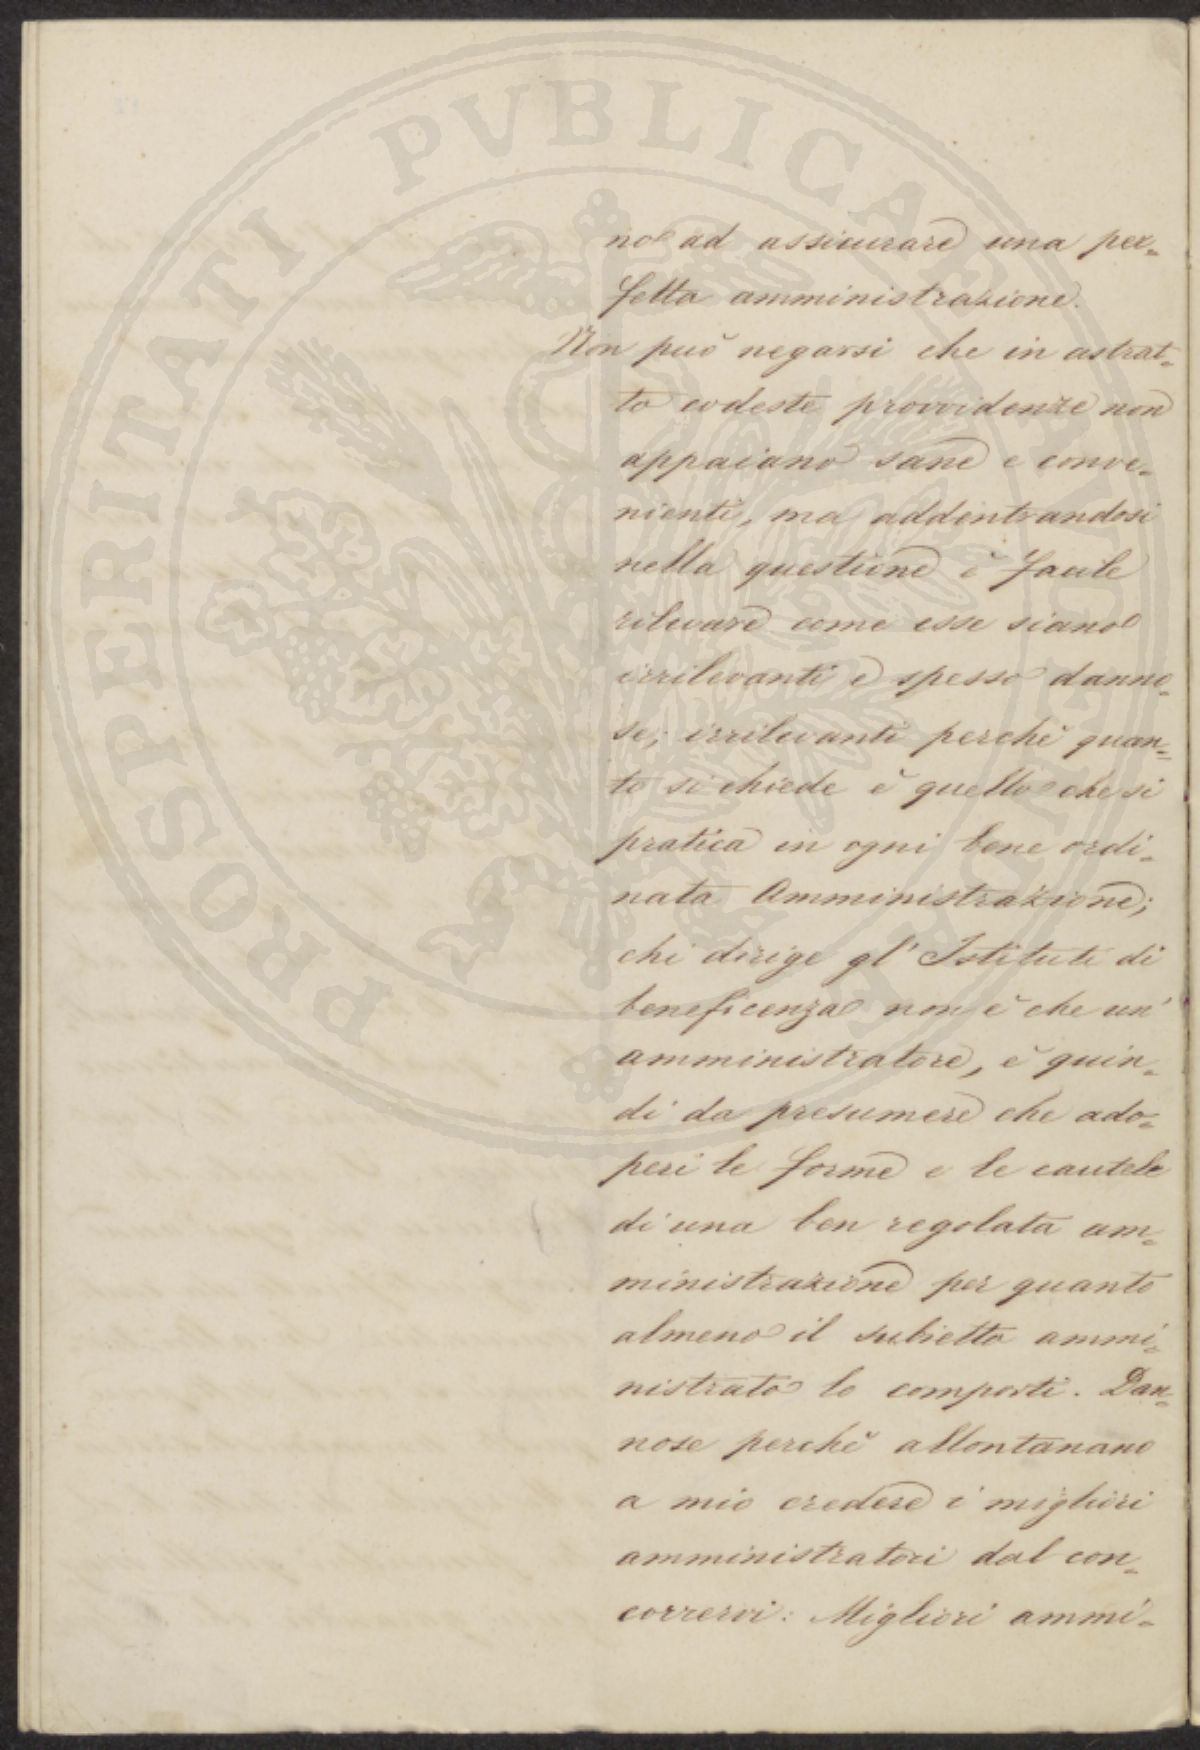 PROSPERITATI PVBLICAE AVGENDAE
no ad assicurare una per=
fetta amministrazione.
Non può negarsi che in astrat=
to codeste provvidenze non
appaiano sane e conve=
nienti, ma addentrandosi
nella questione è facile
rilevare come esse siano
irrilevanti e spesso danno=
se; irrilevanti perchè quan=
to si chiede è quello che si
pratica in ogni bene ordi=
nata Amministrazione;
chi dirige gl' Istituti di
beneficenza non è che un'
amministratore, è quin=
di da presumere che ado=
peri le forme e le cautele
di una ben regolata am=
ministrazione per quanto
almeno il subietto ammi=
nistrato lo comporti. Dan=
nose perchè allontanano
a mio credere i migliori
amministratori dal con=
corrervi: Migliori ammi=